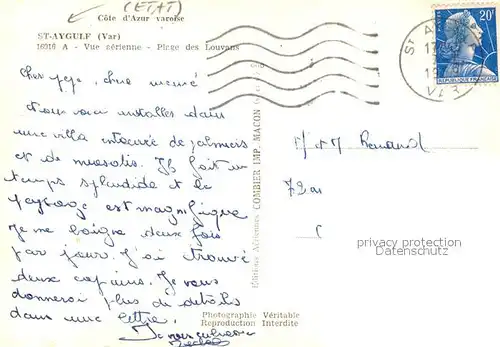 (ETAT)
Côte d'Azur varoise
ST-AYGULF (Var)
16916 A - Vue aérienne - Plage des Louvans
20F
REPUBLIQUE FRANÇAISE
ST A
17
19
VAR
Cher pépé, chère mémé
Nous voici installés dans
une villa entourée de palmiers
et de mimosas. Il fait un
temps splendide et le
paysage est magnifique
Je me baigne deux fois
par jour. J'ai trouvé
deux copains. Je vous
donnerai plus de détails
dans une lettre.
Je vous embrasse
Editions Aériennes COMBIER IMP. MACON
M et M Renard
72
privacy protection
Datenschutz
Photographie Véritable
Reproduction Interdite